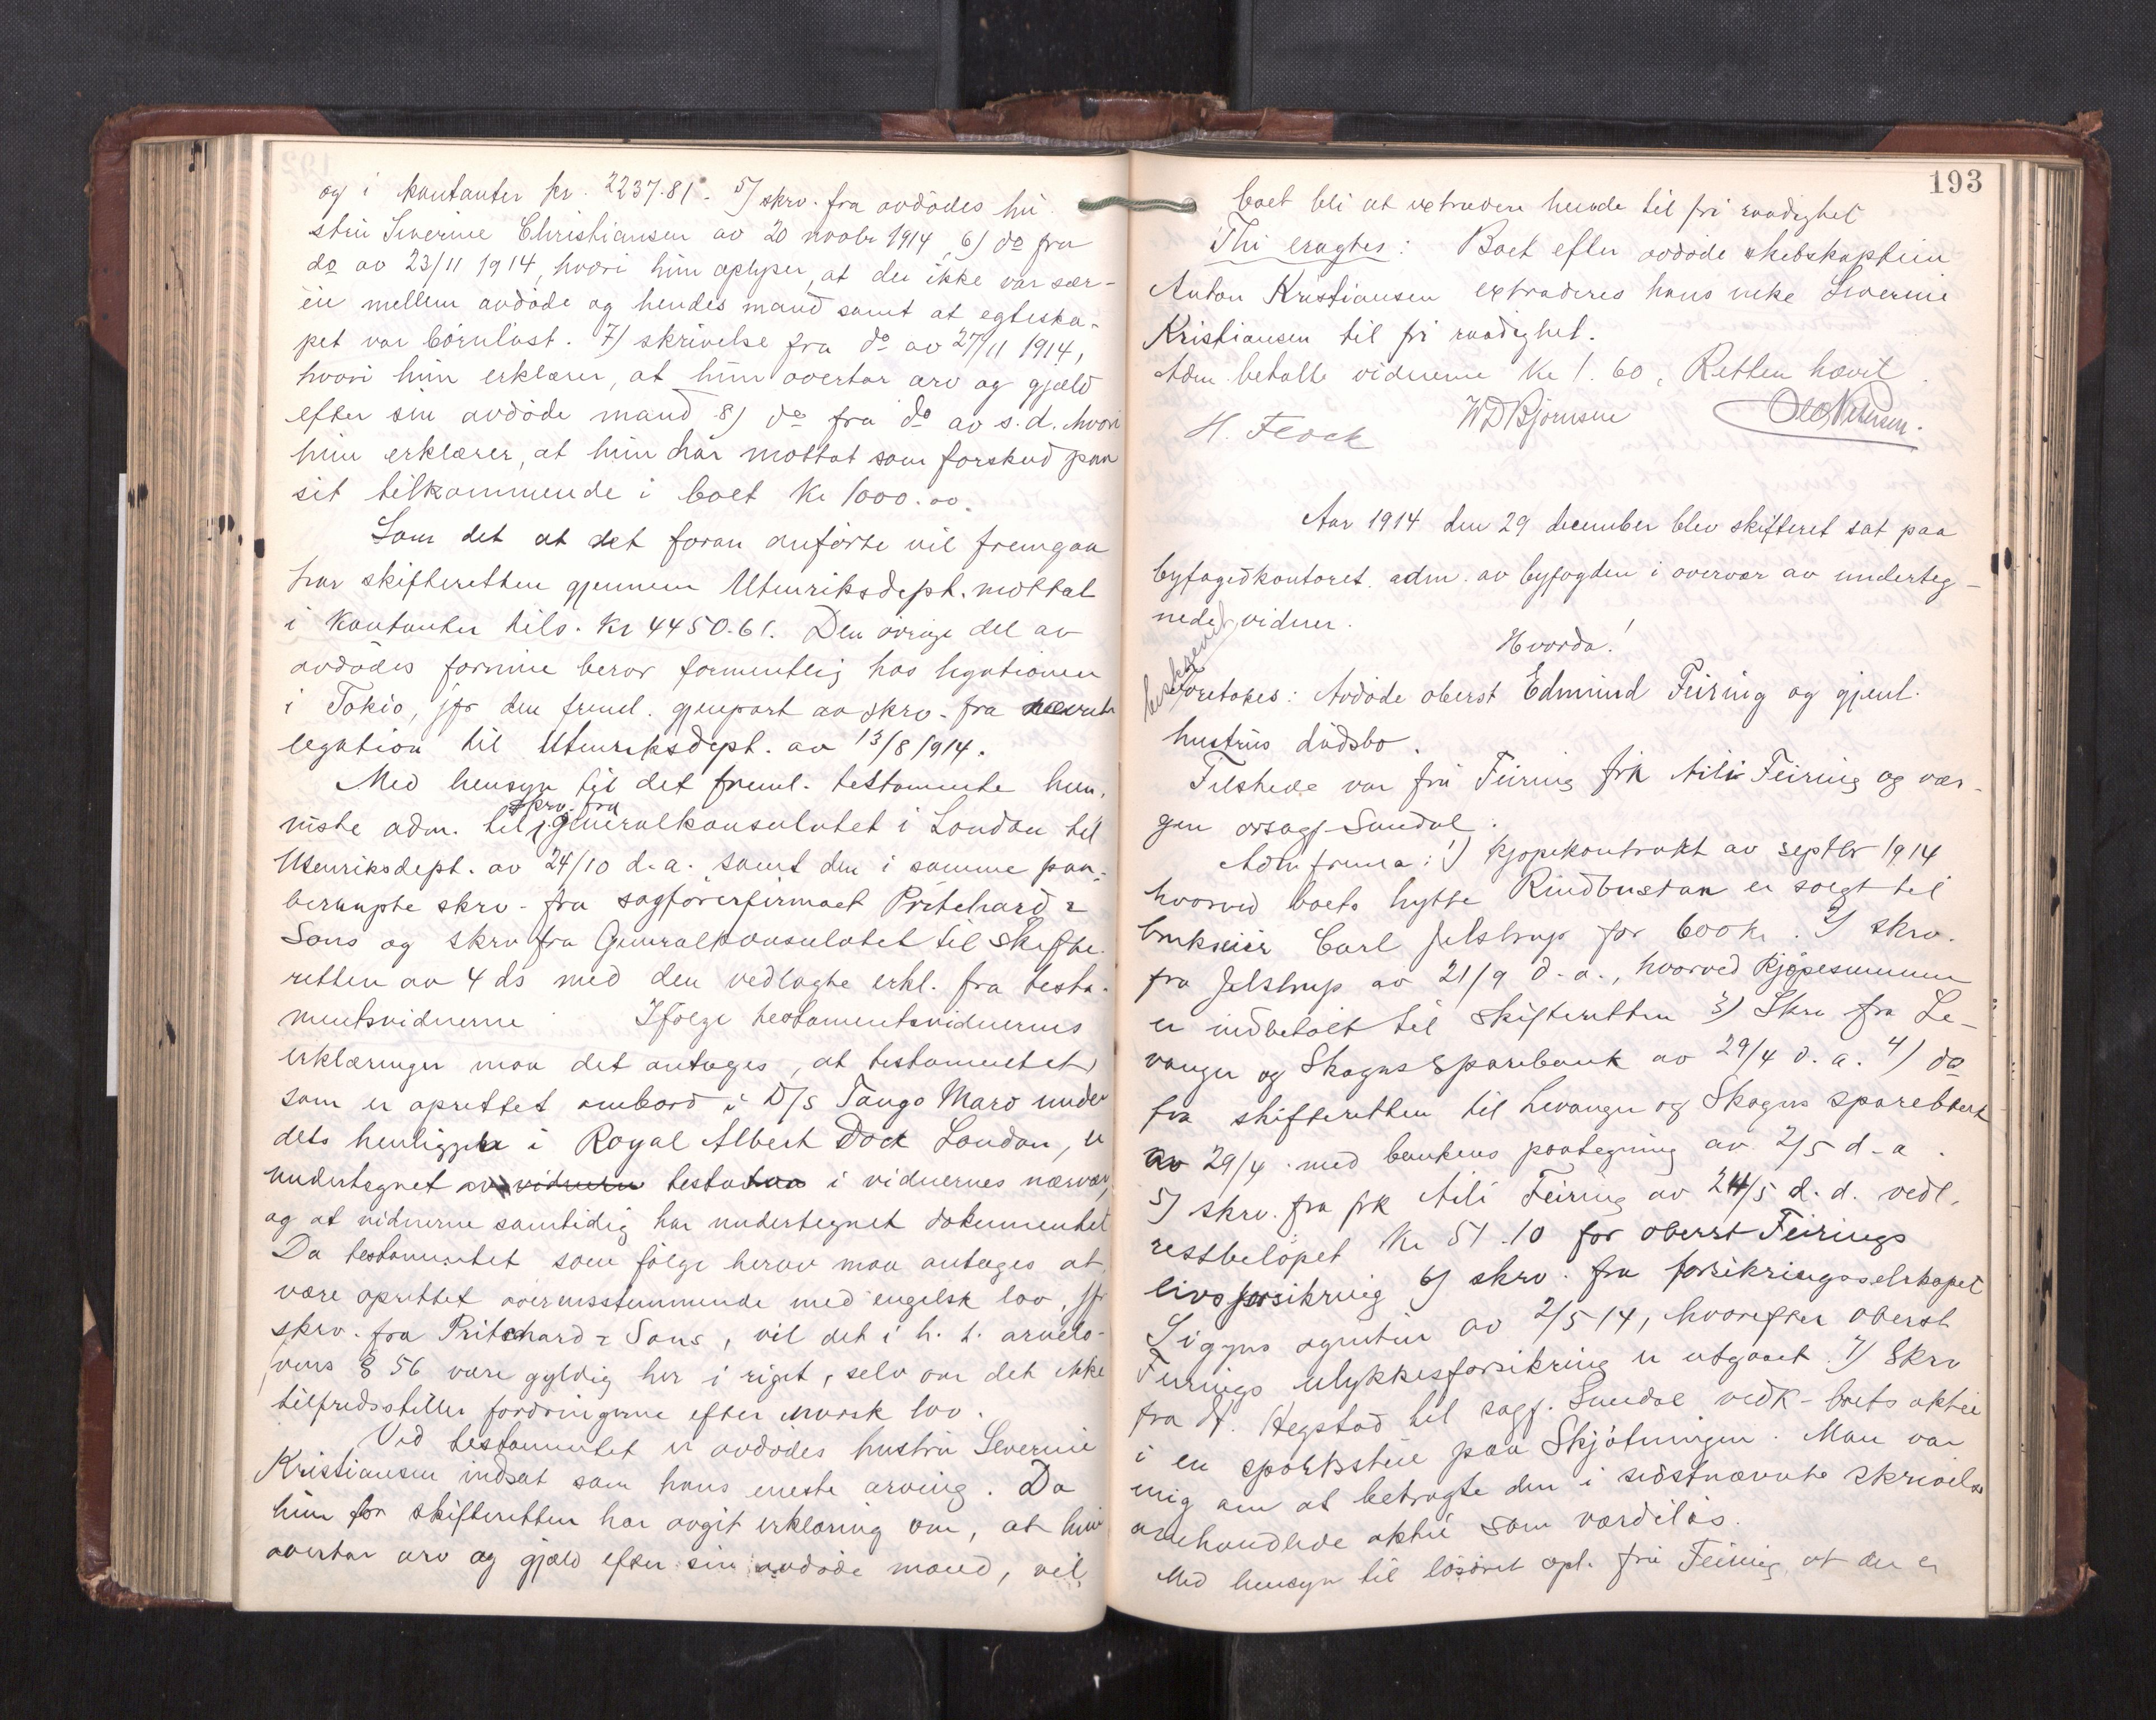 og i kontanter kr. 2237.81. 5) skrv. fra avdødes hu
stru Severine Christiansen av 20 novbr 1914, 6) do fra
do av 23/11 1914, hvori hun oplyser, at der ikke var sær-
eie mellem avdøde og hendes mand samt at egteska-
pet var børnløst. 7) skrivelse fra do av 27/11 1914,
hvori hun erklærer, at hun overtar arv og gjæld
efter sin avdøde mand 8) do fra do av s.d. hvori
hun erklærer, at hun har mottat som forskud paa
sit tilkommende i boet Kr 1000.00.
Som det at det foran anførte vil fremgaa
har skifteretten gjennem Utenriksdept. mottat
i kontanter tils. Kr 4450.61. Den øvrige del av
avdødes formue beror formentlig hos legationen
i Tokio, jfr den freml. gjenpart av skrv. fra nævnte
legation til Utenriksdept. av 13/8 1914.
Med hensyn til det freml. testamente hen-
skrv. fra
viste adm. til generalkonsulatet i London til
Utenriksdept. av 24/10 d.a. samt den i samme paa-
beraapte skrv. fra sagførerfirmaet Pritchard &
Sons og skrv fra Generalkonsulatet til skifte-
retten av 4 ds med den vedlagte erkl. fra testa-
mentsvidnerne Ifølge testamentsvidnernes
erklæringer maa det antages, at testamentet
som er oprettet ombord i D/S Tango Maro under
dets henliggen i Royal Albert Dock London, er
undertegnet av vidnern testator i vidnernes nærvær,
og at vidnerne samtidig har undertegnet dokumentet
Da testamentet som følge herav maa antages at
være oprettet overensstemmende med engelsk lov, jfr
skrv. fra Pritchard & Sons, vil det i h. t. arvelo-
vens § 56 være gyldig her i riget, selv om det ikke
tilfredsstiller fordringerne efter norsk lov.
Ved testamentet er avdødes hustru Severine
Kristiansen indsat som hans eneste arving. Da
hun for skifteretten har avgit erklæring om, at hun
overtar arv og gjæld efter sin avdøde mand, vil
193
boet bli at extradere hende til fri raadighet
Thi eragtes: Boet efter avdøde skibskaptein
Anton Kristiansen extraderes hans enke Severine
Kristiansen til fri raadighet.
Adm. betalte vidnerne Kr 1.60. Retten hævet.
H. Flock WD Bjørnsen Ole Petersen.
Aar 1914 den 29 december blev skifteret sat paa
byfogedkontoret adm. av byfogden i overvær av underteg-
nede vidner.
Hvorda!
beskreved
Foretokes: Avdøde oberst Edmund Feiring og gjenl.
hustrus dødsbo.
Tilstede var fru Feiring frk Aili Feiring og vær-
gen orsagf. Sundal.
Adm frem la: 1) kjøpekontrakt av septbr 1914
hvorved boets hytte Rindbustan er solgt til
brukseier Carl Jelstrup for 600 kr. 2) skrv.
fra Jelstrup av 21/9 d.a., hvorved kjøpesummen
er indbetalt til skifteretten 3) Skrv fra Le-
vanger og Skogns Sparebank av 29/4 d.a. 4) do
fra skifteretten til Levanger og Skogns sparebank
av 29/4 med bankens paategning av 2/5 d.a.
5) skrv. fra frk Aili Feiring av 24/5 d.d. vedl.
restbeløpet Kr 51.10 for oberst Feirings
livsforsikring 6) skrv. fra forsikringsselskapet
Sigyns agentur av 2/5 14, hvorefter oberst
Feirings ulykkesforsikring er utgaaet 7) Skrv
fra H. Hegstad til sagf. Sundal vedk. boets aktie
i en sportsstue paa Skjøtningen. Man var
enig om at betragte den i sidstnævnte skrivelse
omhandlede aktie som værdiløs.
Med hensyn til løsøret opl. fru Feiring at der er